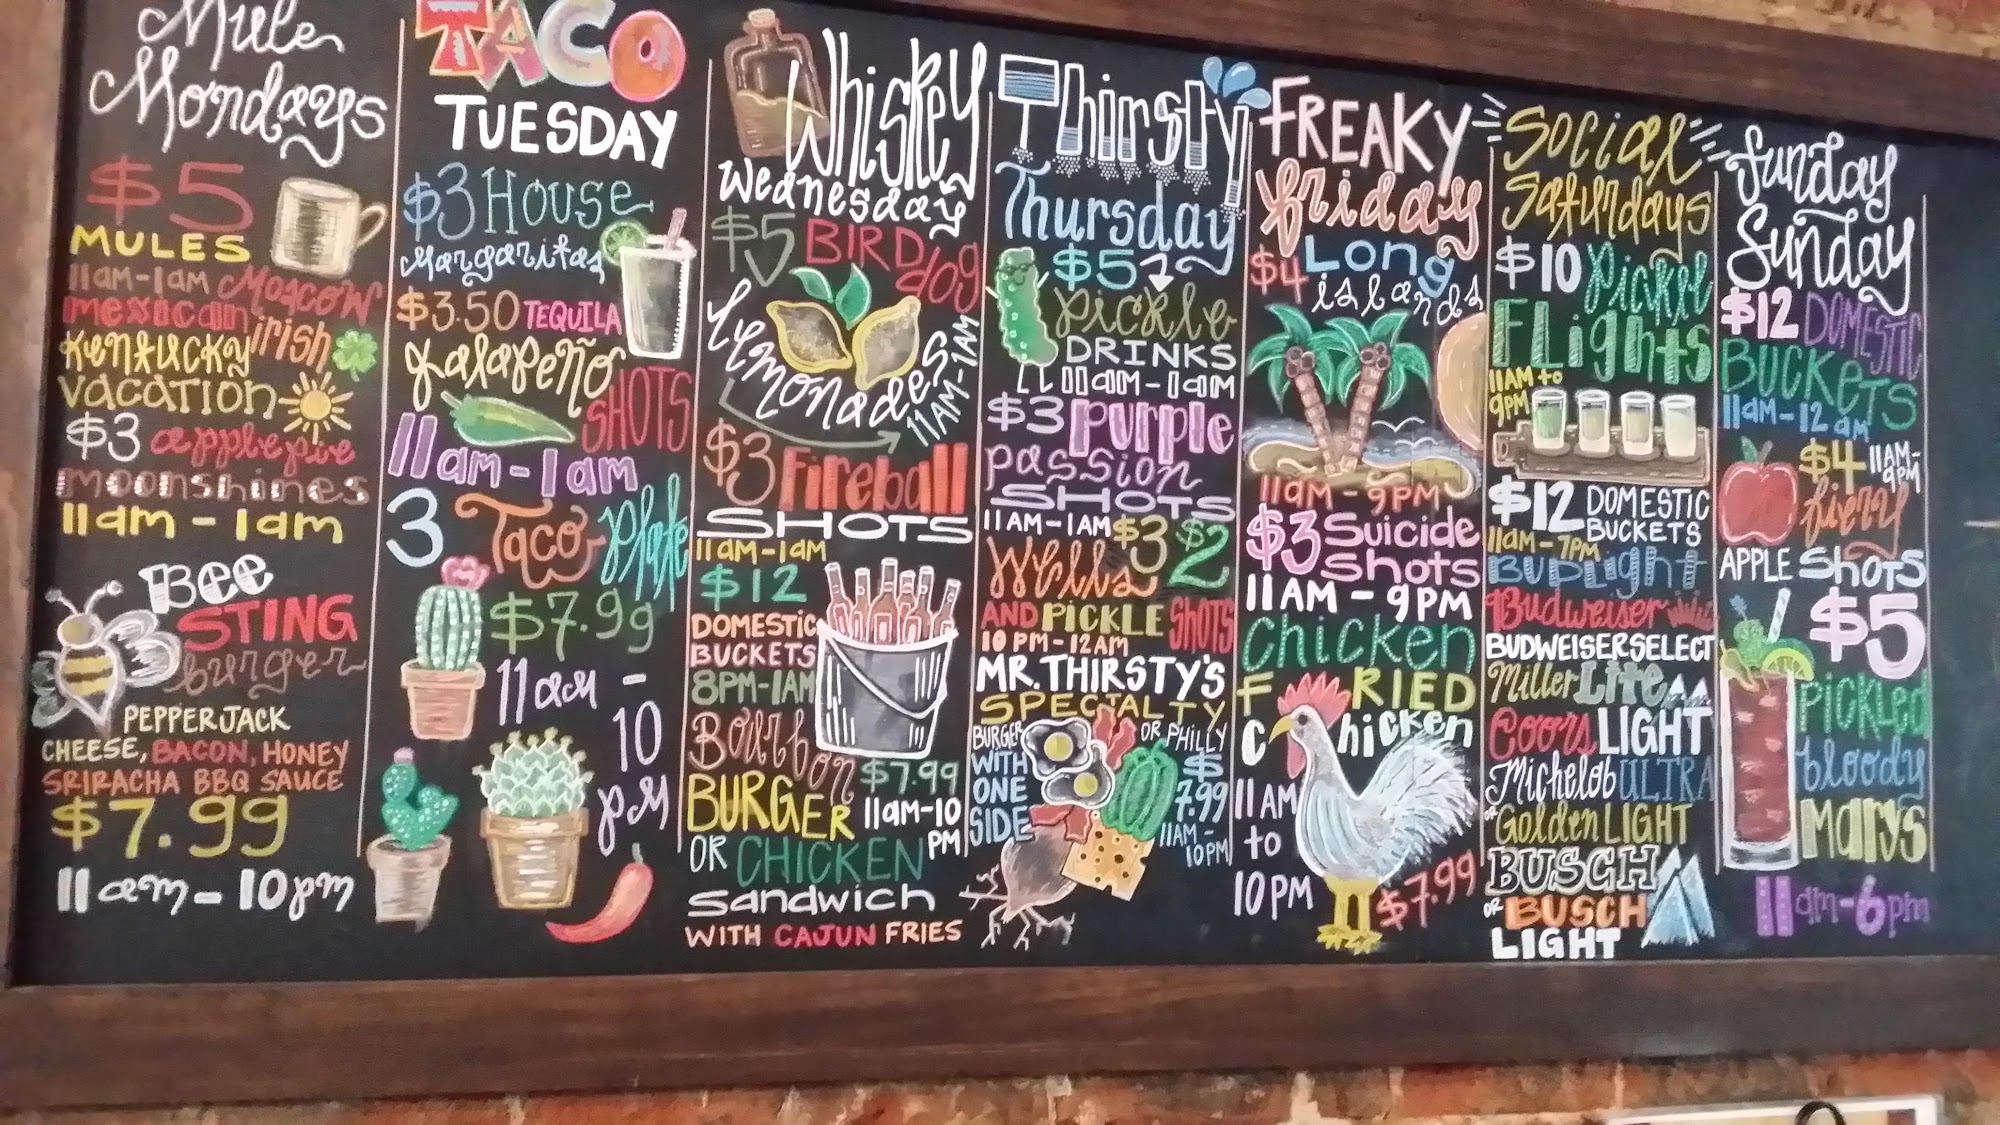 Mule
Mondays
$5
MULES
11am-1am Moscow
mexican irish
Kentucky
Vacation
$3 apple pie
moonshines
11am - 1am
BEE
STING
burger
PEPPERJACK
CHEESE, BACON, HONEY
SRIRACHA BBQ SAUCE
$7.99
11am - 10pm
TACO
TUESDAY
$3 House
Margaritas
$3.50 TEQUILA
Jalapeño
SHOTS
11am - 1am
3 Taco Plate
$7.99
11am -
10
pm
Whiskey
Wednesday
$5 BIRD
dog
Lemonades
11AM-1AM
$3 Fireball
SHOTS
11am-1am
$12
DOMESTIC
BUCKETS
8PM-1AM
Bourbon
$7.99
BURGER 11am-10
PM
OR CHICKEN
Sandwich
WITH CAJUN FRIES
Thirsty
Thursday
$5
Pickle
DRINKS
11am-1am
$3 Purple
passion
SHOTS
11AM-1AM $3 $2
Wells
AND PICKLE SHOTS
10PM-12AM
MR. THIRSTY'S
SPECIALTY
BURGER OR PHILLY
WITH $
ONE 7.99
SIDE 11AM-
10PM
FREAKY
Friday
$4 Long
islands
11am - 9PM
$3 Suicide
Shots
11AM - 9PM
Chicken
FRIED
Chicken
11AM
to
10PM $7.99
Social
Saturdays
$10 Pickle
Flights
11AM to
9PM
$12 DOMESTIC
BUCKETS
11am-7PM
BUDLight
Budweiser
BUDWEISER SELECT
Miller Lite
Coors LIGHT
Michelob ULTRA
Golden LIGHT
BUSCH
OR BUSCH
LIGHT
Sunday
Sunday
$12 DOMESTIC
BUCKETS
11am-12am
$4 11AM-
9PM
fiery
APPLE SHOTS
$5
PICKLED
bloody
MARYS
11am-6pm